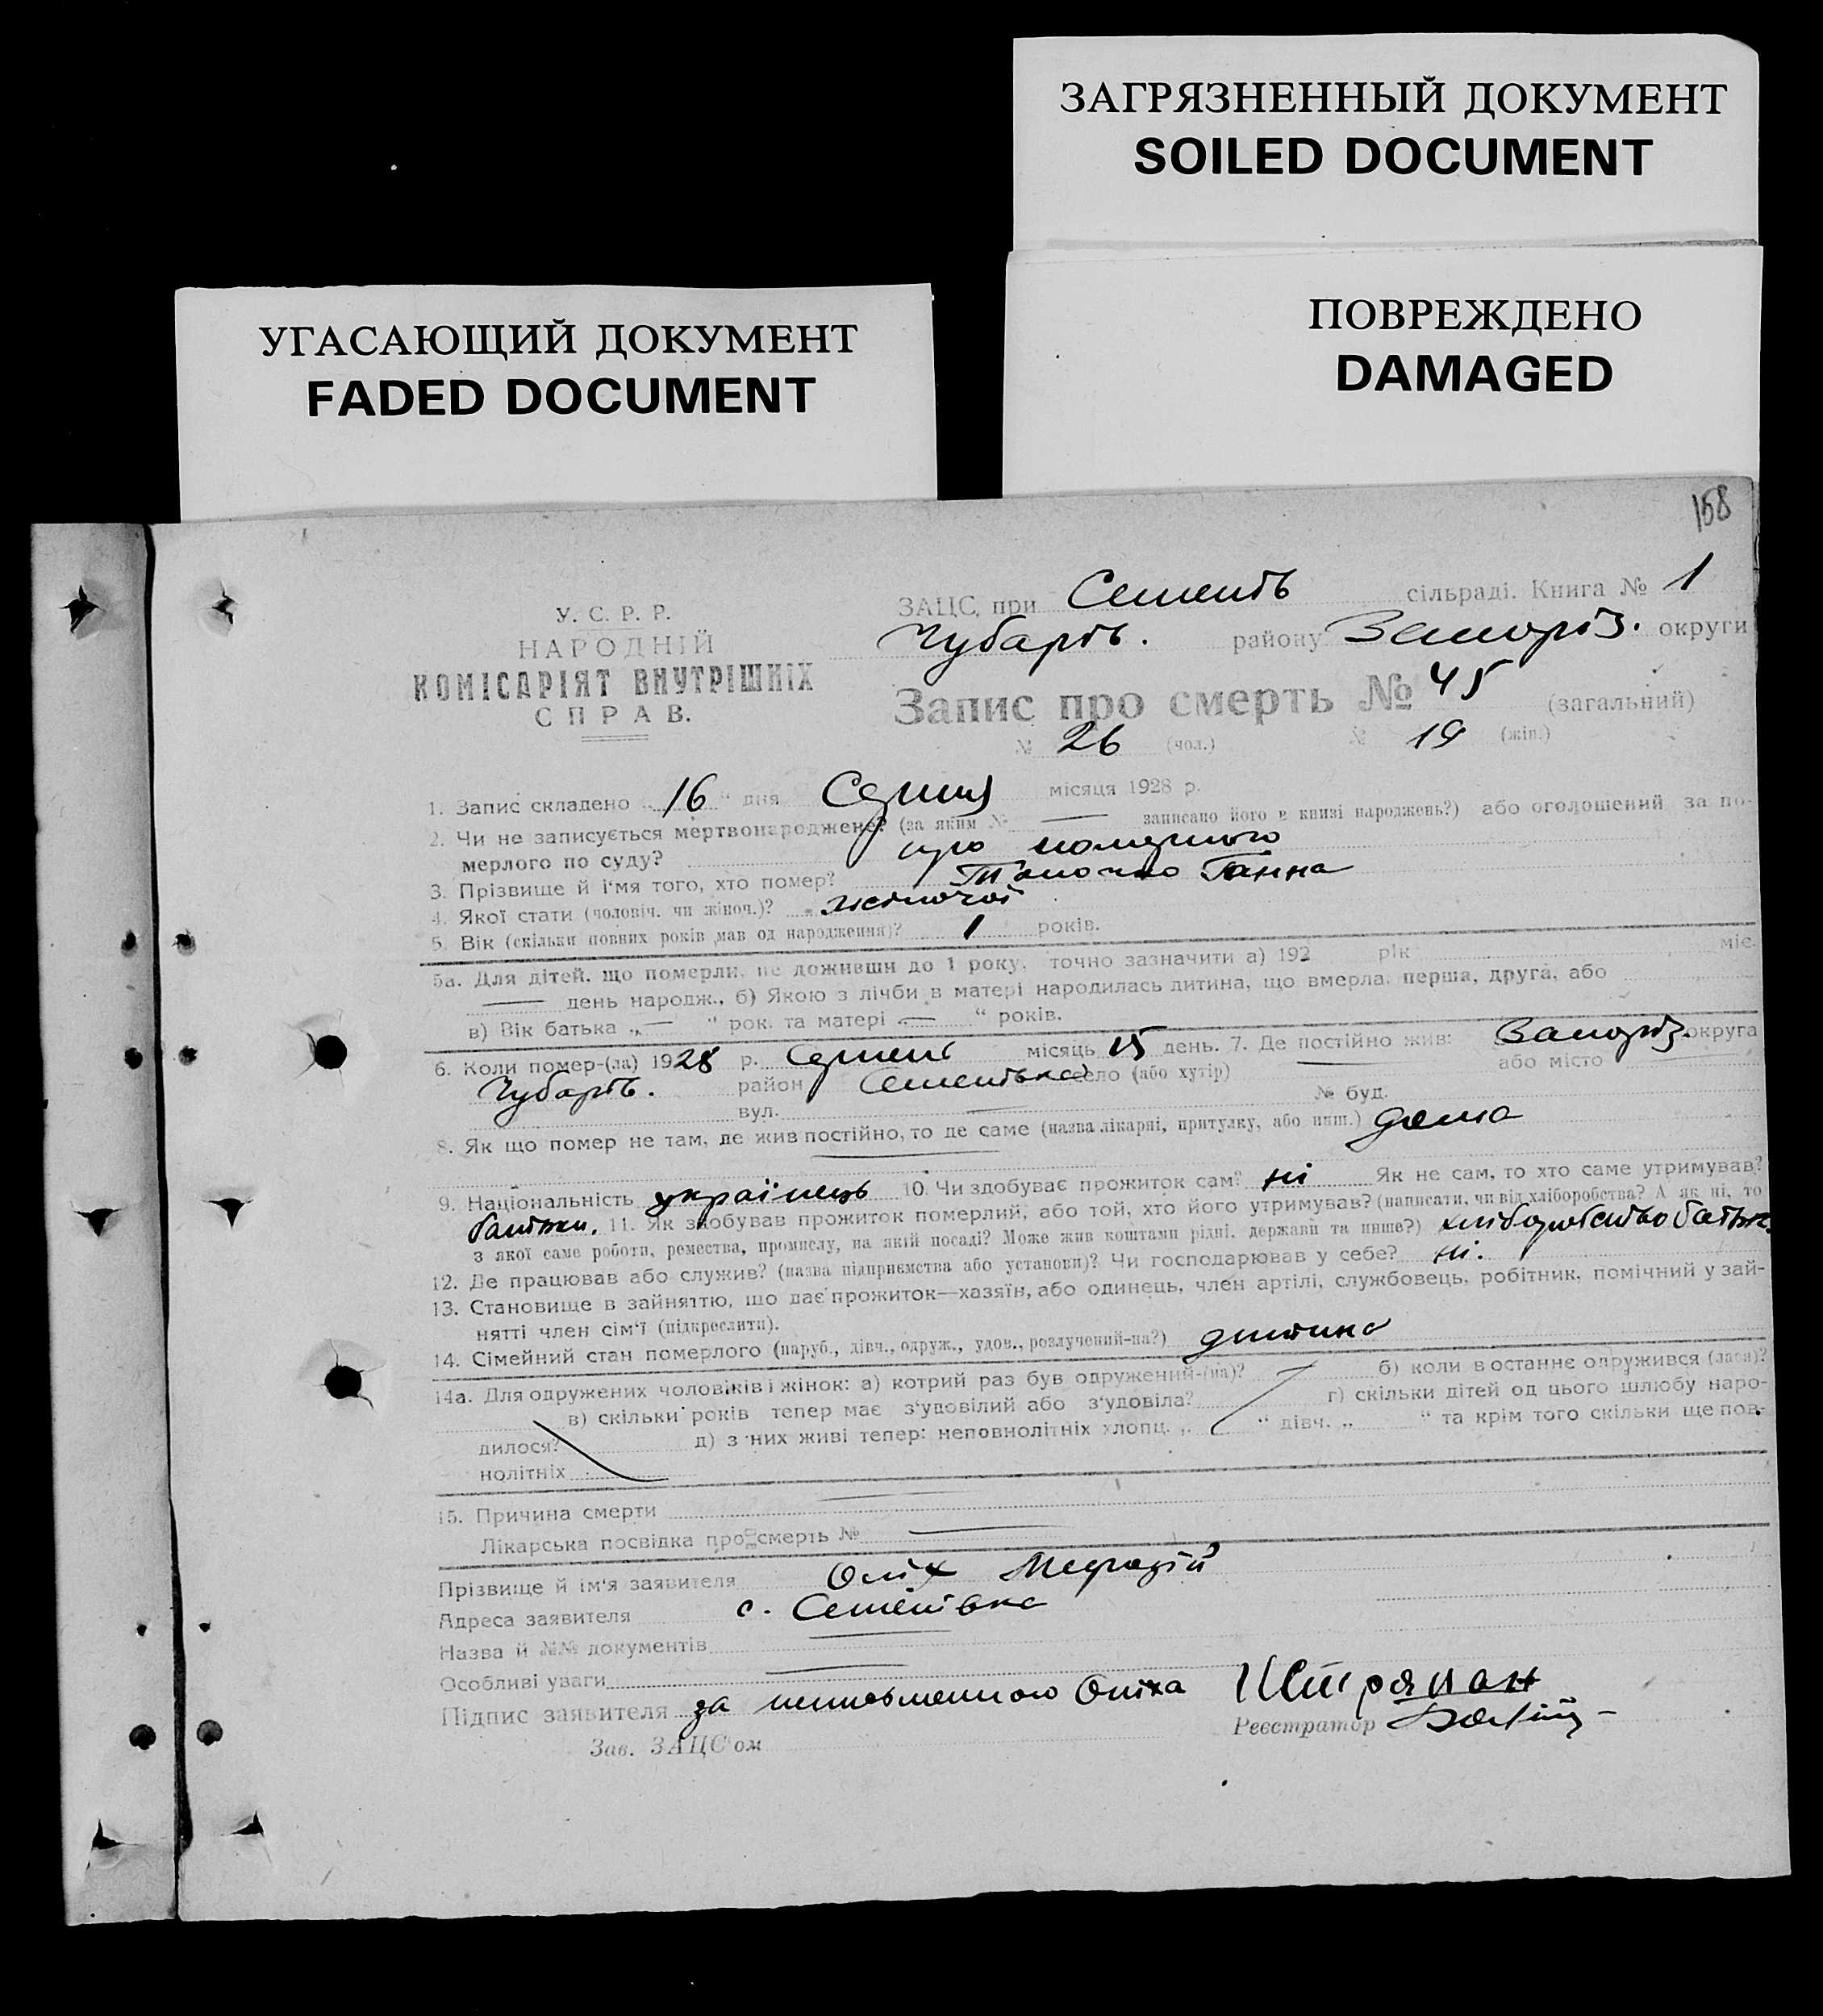 ЗАГРЯЗНЕННЫЙ ДОКУМЕНТ
SOILED DOCUMENT
УГАСАЮЩИЙ ДОКУМЕНТ
FADED DOCUMENT
ПОВРЕЖДЕНО
DAMAGED
158
У. С. Р. Р.
НАРОДНІЙ
КОМІСАРІЯТ ВНУТРІШНІХ
СПРАВ.
ЗАЦС, при Семенів сільраді. Книга № 1
Чубарів. району Запоріз. округи
Запис про смерть № 45 (загальний)
№ 26 (чол.) № 19 (жін.)
1. Запис складено „16“ дня Серпня місяця 1928 р.
2. Чи не записується мертвонароджене? (за яким № — записано його в книзі народжень?) або оголошений за по-
мерлого по суду? про померлого
3. Прізвище й ім'я того, хто помер? Ганна
4. Якої стати (чоловіч. чи жіноч.)? жіночої
5. Вік (скільки повних років мав од народження)? 1 років.
5а. Для дітей, що померли, не доживши до 1 року, точно зазначити а) 192 рік міс.
— день народж., б) Якою з лічби в матері народилась дитина, що вмерла, перша, друга, або
в) Вік батька „—“ рок. та матері „—“ років.
6. Коли помер-(ла) 1928 р. серпень місяць 15 день. 7. Де постійно жив: Запоріз. округа
Чубарів. район Семенівка село (або хутір) — або місто —
вул. — № буд.
8. Як що помер не там, де жив постійно, то де саме (назва лікарні, притулку, або инш.) дома
9. Національність українець 10. Чи здобуває прожиток сам? ні Як не сам, то хто саме утримував?
батьки. 11. Як здобував прожиток померлий, або той, хто його утримував? (написати, чи від хліборобства? А як ні, то
з якої саме роботи, ремества, промислу, на якій посаді? Може жив коштами рідні, держави та инше?) хліборобство батьк.
12. Де працював або служив? (назва підприємства або установи)? Чи господарював у себе? ні.
13. Становище в зайняттю, що дає прожиток—хазяїн, або одинець, член артілі, службовець, робітник, помічний у зай-
нятті член сім'ї (підкреслити).
14. Сімейний стан померлого (паруб., дівч., одруж., удов., розлучений-на?) дитина
14а. Для одружених чоловіків і жінок: а) котрий раз був одружений-(на)? б) коли востаннє одружився (лася)?
в) скільки років тепер має з'удовілий або з'удовіла? г) скільки дітей од цього шлюбу наро-
дилося? д) з них живі тепер: неповнолітніх хлопц. „ “ дівч. „ “ та крім того скільки ще пов-
нолітніх
15. Причина смерти —
Лікарська посвідка про смерть № —
Прізвище й ім'я заявителя Опіх
Адреса заявителя с. Семенівка
Назва й №№ документів —
Особливі уваги —
Підпис заявителя за неписьменного Опіха
Реєстратор
Зав. ЗАЦС'ом